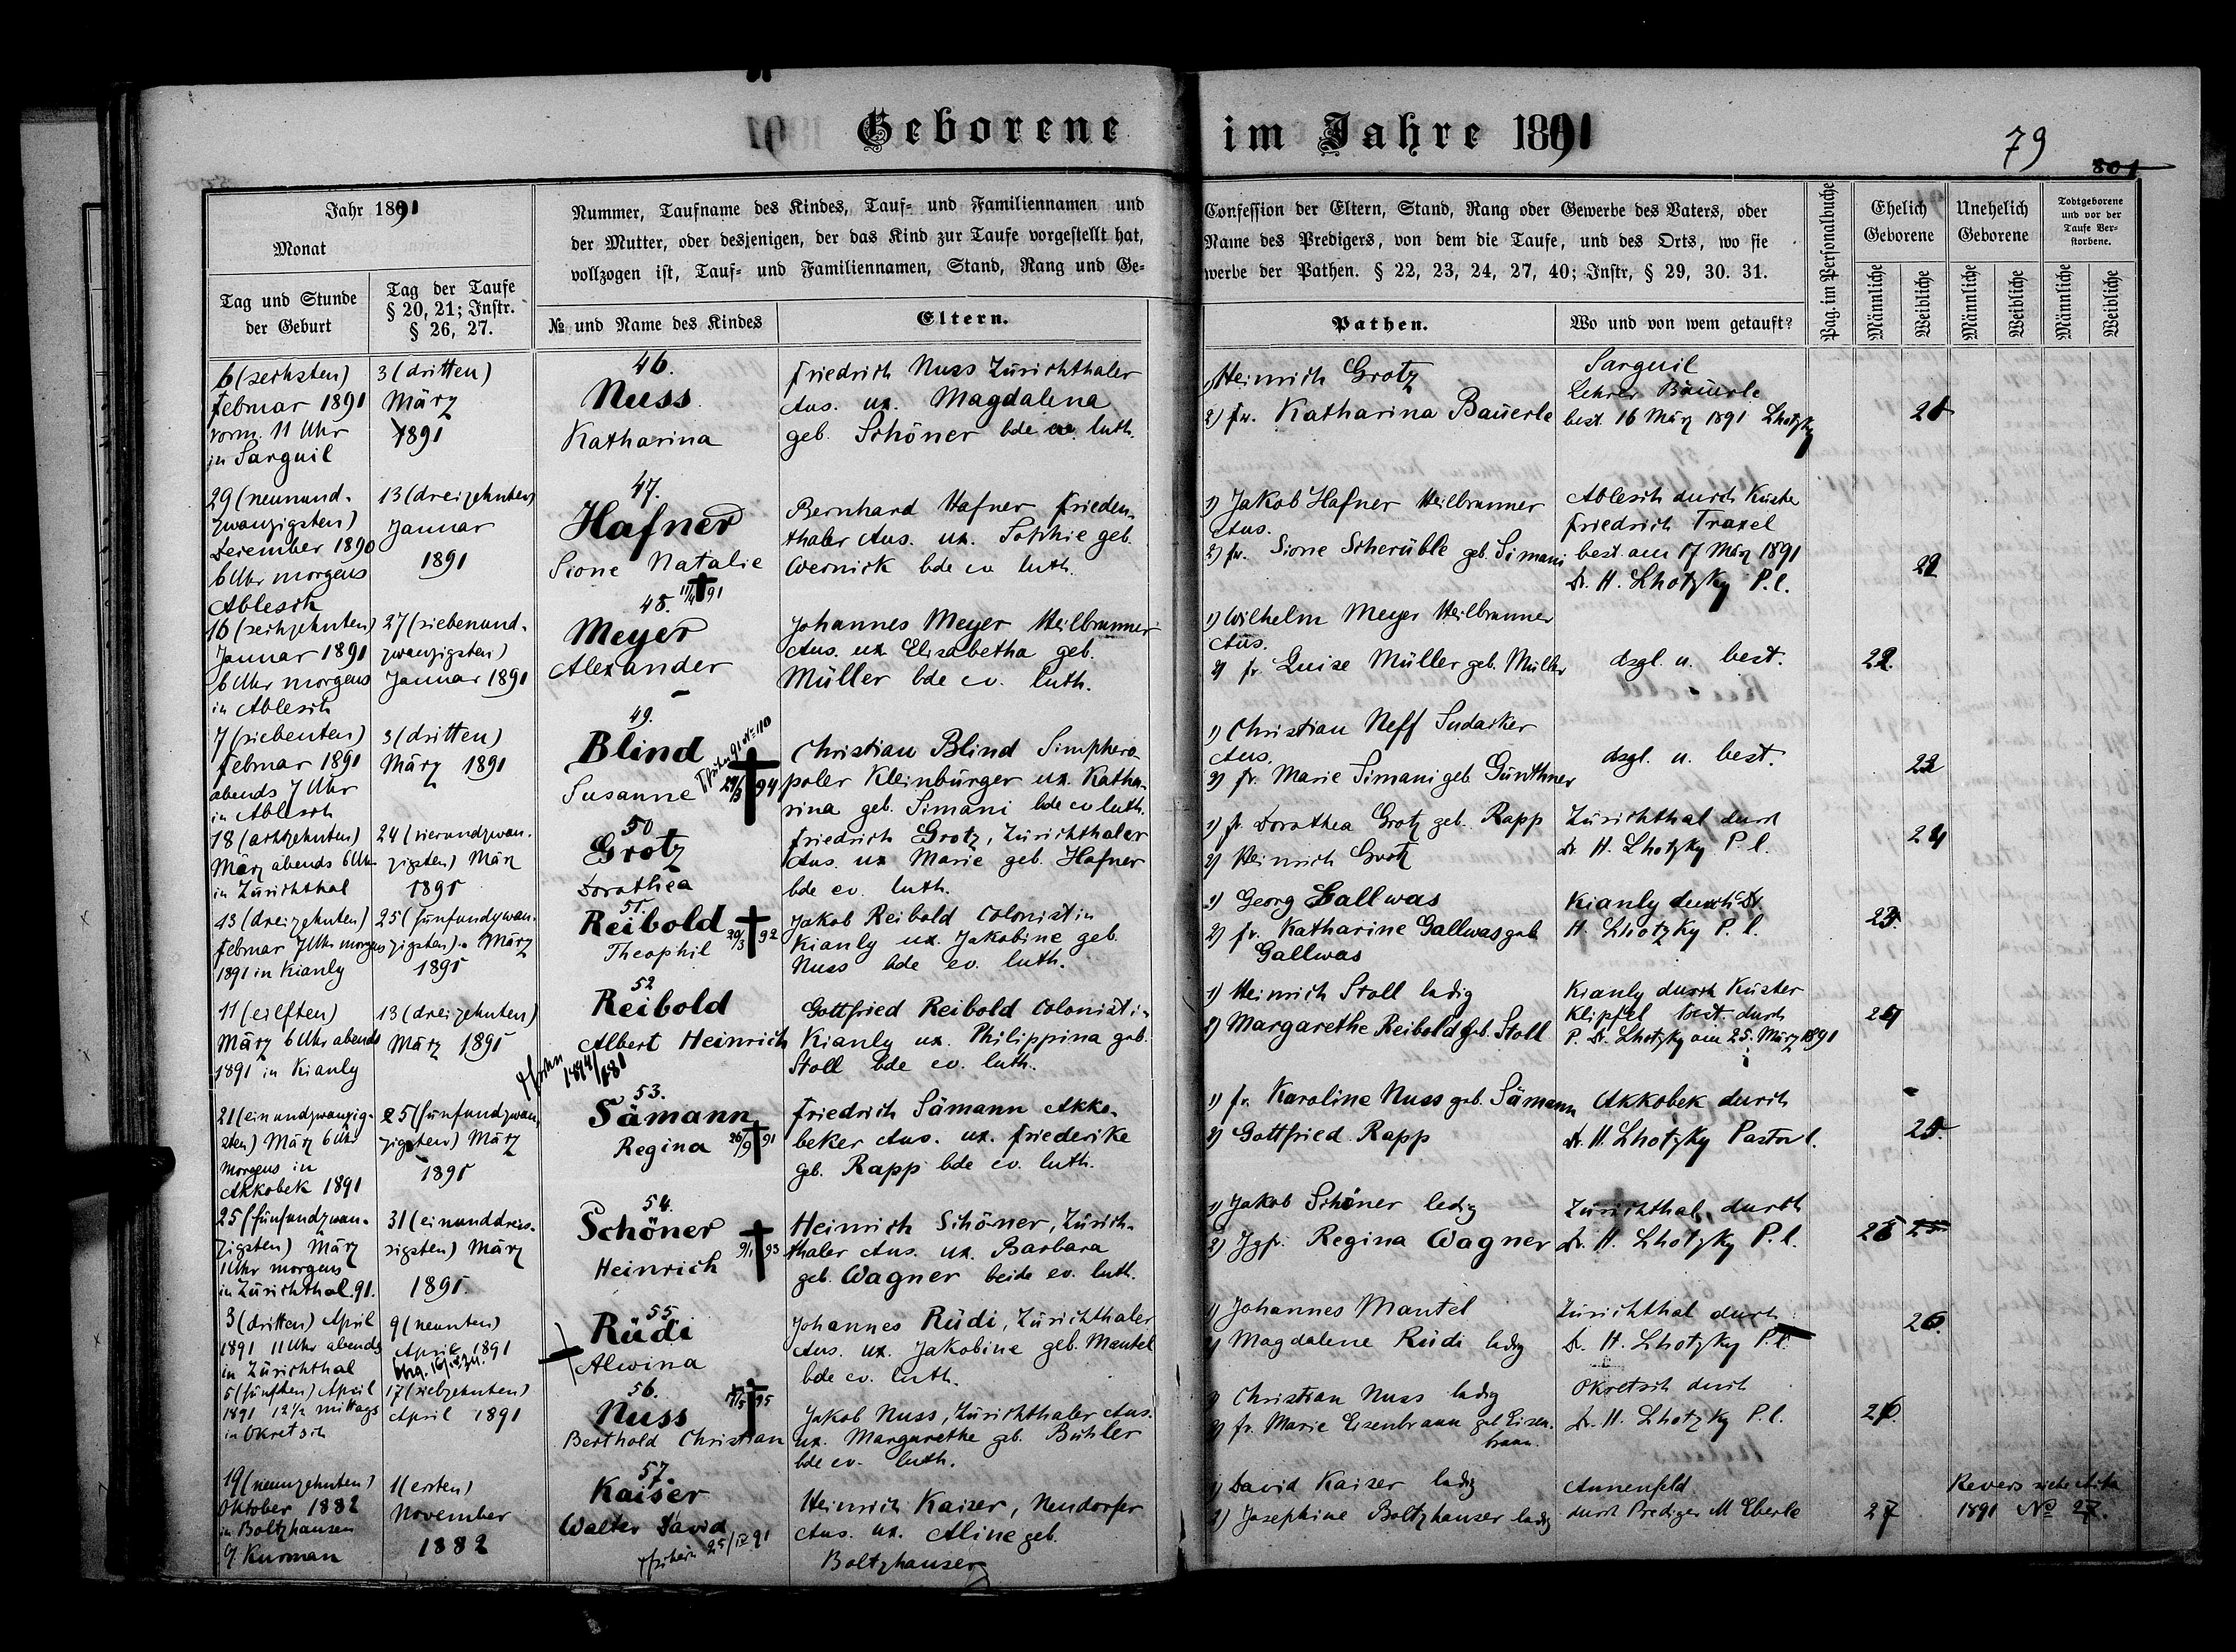 Geborene im Jahre 1891
79
801
Jahr 1891
Monat
Tag und Stunde
der Geburt
Tag der Taufe
§ 20, 21; Instr.
§ 26, 27.
Nummer, Taufname des Kindes, Tauf- und Familiennamen und
der Mutter, oder desjenigen, der das Kind zur Taufe vorgestellt hat,
vollzogen ist, Tauf- und Familiennamen, Stand, Rang und Ge-
№ und Name des Kindes
Eltern.
Confession der Eltern, Stand, Rang oder Gewerbe des Vaters, oder
Name des Predigers, von dem die Taufe, und des Orts, wo sie
werbe der Pathen. § 22, 23, 24, 27, 40; Instr, § 29, 30. 31.
Pathen.
Wo und von wem getauft?
Pag. im Personalbuche
Ehelich
Geborene
Unehelich
Geborene
Todtgeborene
und vor der
Taufe Ver-
storbene.
Männliche
Weibliche
Männliche
Weibliche
Männliche
Weibliche
6 (sechsten)
Februar 1891
vorm. 11 Uhr
in Sarguil
3 (dritten)
März
1891
46.
Nuss
Katharina
Friedrich Nuss Zürichthaler
Aus. ux. Magdalena
geb. Schöner bde ev. luth.
1) Heinrich Grotz
2) fr. Katharina Bäuerle
Sarguil
Lehrer Bäuerle
best. 16 März 1891 Lhotzky
21
29 (neunund-
zwanzigsten)
Dezember 1890
6 Uhr morgens
Ablesch
13 (dreizehnten)
Januar
1891
47.
Hafner
Sione Natalie
11/4 91
Bernhard Hafner Frieden-
thaler Aus. ux. Sophie geb.
Wernick bde ev luth.
1) Jakob Hafner Heilbrunner
Aus.
2) fr. Sione Scherüble geb. Simani
Ablesch durch Küster
Friedrich Traxel
best. am 17 März 1891
Dr. H. Lhotzky P. l.
22
16 (sechzehnten)
Januar 1891
6 Uhr morgens
in Ablesch
27 (siebenund-
zwanzigsten)
Januar 1891
48.
Meyer
Alexander
Johannes Meyer Heilbrunner
Aus. ux Elisabetha geb.
Müller bde ev. luth.
1) Wilhelm Meyer Heilbrunner
Aus.
2) fr. Luise Müller geb. Müller
dsgl. u. best.
22.
7 (siebenten)
Februar 1891
abends 7 Uhr
in Ablesch
3 (dritten)
März 1891
49.
Blind
Susanne
29/3 94
Christian Blind Simphero-
poler Kleinbürger ux. Katha-
rina geb. Simani bde ev luth.
1) Christian Neff Sudacker
Aus.
2) fr. Marie Simani geb. Günthner
dsgl. u. best.
23
18 (achtzehnten)
März abends 6 Uhr
in Zürichthal
24 (vierundzwan-
zigsten) März
1891
50
Grotz
Dorothea
Friedrich Grotz, Zürichthaler
Aus. ux Marie geb. Hafner
bde ev. luth.
1) fr. Dorothea Grotz geb. Rapp
2) Heinrich Grotz
Zürichthal durch
Dr. H. Lhotzky P. l.
24
13 (dreizehnten)
Februar 7 Uhr morgens
1891 in Kianly
25 (fünfundzwan-
zigsten). März
1891
51.
Reibold
Theophil
20/3 92
Jakob Reibold Colonist in
Kianly ux. Jakobine geb.
Nuss bde ev. luth.
1) Georg Gallwas
2) fr. Katharine Gallwas geb
Gallwas
Kianly durch Dr.
H. Lhotzky P. l.
23.
11 (eilften)
März 6 Uhr abends
1891 in Kianly
13 (dreizehnten)
März 1891
52
Reibold
Albert Heinrich
1894/181
Gottfried Reibold Colonist in
Kianly ux. Philippina geb.
Stoll bde ev. luth.
1) Heinrich Stoll ledig
2) Margarethe Reibold geb. Stoll
Kianly durch Küster
Klipfel best. durch
P. Dr. Lhotzky am 25. März 1891
24
21 (einundzwanzig-
sten) März 6 Uhr
morgens in
Akkobek 1891
25 (fünfundzwan-
zigsten) März
1891
53.
Sämann
Regina
26/9 91
Friedrich Sämann Akko-
beker Aus. ux. Friederike
geb. Rapp bde ev. luth.
1) fr. Karoline Nuss geb. Sämann
2) Gottfried Rapp
Akkobek durch
Dr. H. Lhotzky Pastor l.
25.
25 (fünfundzwan-
zigsten) März
1 Uhr morgens
in Zürichthal. 91.
31 (einunddreis-
sigsten) März
1891.
54.
Schöner
Heinrich
9/1 93
Heinrich Schöner, Zürich-
thaler Aus. ux. Barbara
geb. Wagner beide ev. luth.
1) Jakob Schöner ledig
2) Jgfr. Regina Wagner
Zürichthal, durch
Dr. H. Lhotzky P. l.
25 25
3 (dritten) April
1891 11 Uhr abends
in Zürichthal
9 (neunten)
April 1891
55.
Rüdi
Alwina
Johannes Rüdi, Zürichthaler
Aus. ux. Jakobine geb. Mantel
bde ev. luth.
1) Johannes Mantel
2) Magdalene Rüdi ledig
Zürichthal durch
Dr. H. Lhotzky P. l.
26.
5 (fünften) April
1891 12½ mittags
in Okretsch
17 (siebzehnten)
April 1891
56.
Nuss
Berthold Christian
17/5 95
Jakob Nuss, Zürichthaler Aus.
ux. Margarethe geb. Bühler
bde ev. luth.
1) Christian Nuss ledig
2) fr. Marie Eisenbraun geb Eisen-
braun.
Okretsch durch
Dr. H. Lhotzky P. l.
26.
19 (neunzehnten)
Oktober 1882
in Boltzhausen
Kurman
1 (ersten)
November
1882
57.
Kaiser
Walter David
25/IV 91
Heinrich Kaiser, Neudorfer
Aus. ux. Aline geb.
Boltzhauser
1) David Kaiser ledig
2) Josephine Boltzhauser ledig
Annenfeld
durch Prediger M Eberle
27
Revers siehe Akta
1891 № 27.